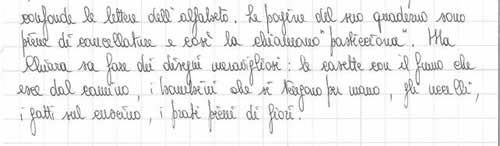 confonde le lettere dell'alfabeto. Le pagine del suo quaderno sono
piene di cancellature e così la chiamano "pasticciona". Ma
Chiara sa fare dei disegni meravigliosi: le casette con il fumo che
esce dal camino, i bambini che si tengono per mano, gli uccelli,
i gatti sul cuscino, i prati pieni di fiori.